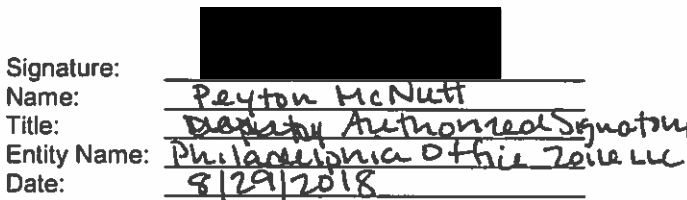 Signature:
Name: Peyton McNutt
Title: Authorized Signatory
Entity Name: Philadelphia Office LLC
Date: 8/29/2018